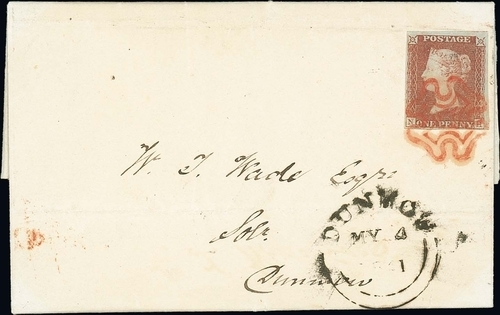 POSTAGE
ONE PENNY
W. T. Wade Esqre
Solr
Dunmow
DUNMOW
MY 4